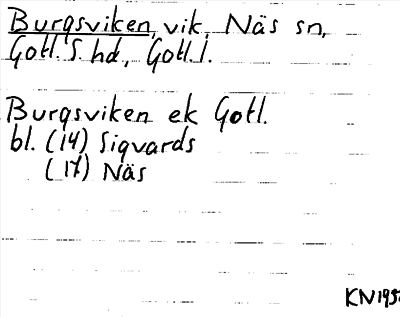 Burgsviken, vik, Näs sn,
Gotl. S. hd., Gotl. l.
Burgsviken ek Gotl.
bl. (14) Sigvards
(17) Näs